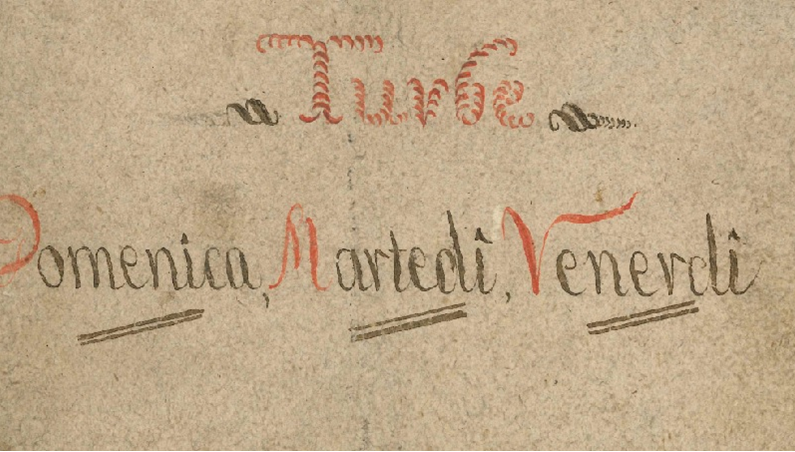 Turbe
Domenica, Martedî, Venerdî